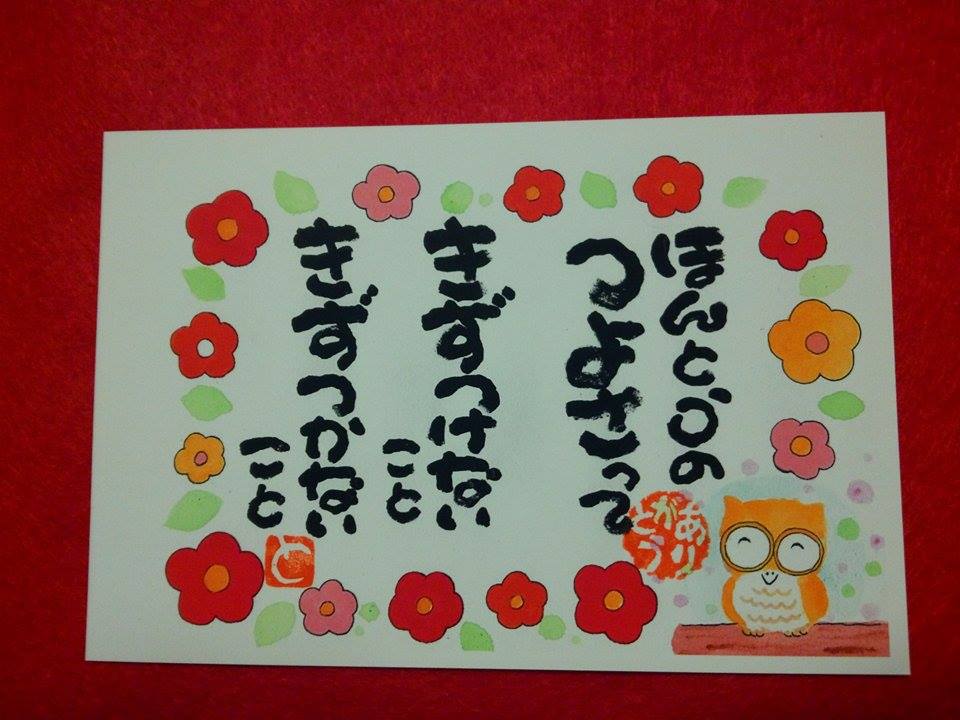 ほんとうの
つよさって
きずつけない
こと
きずつかない
こと
あり
がとう
と